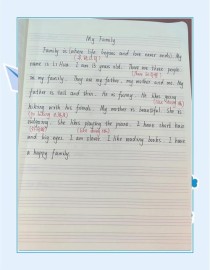 My Family
Family is where life begins and love never ends. My
name is Li Hua. I am 13 years old. There are three people
in my family. They are my father, my mother and me. My
father is tall and thin. He is funny. He likes going
fishing with his friends. My mother is beautiful. She is
outgoing. She likes playing the piano. I have short hair
and big eyes. I am smart. I like reading books. I have
a happy family.